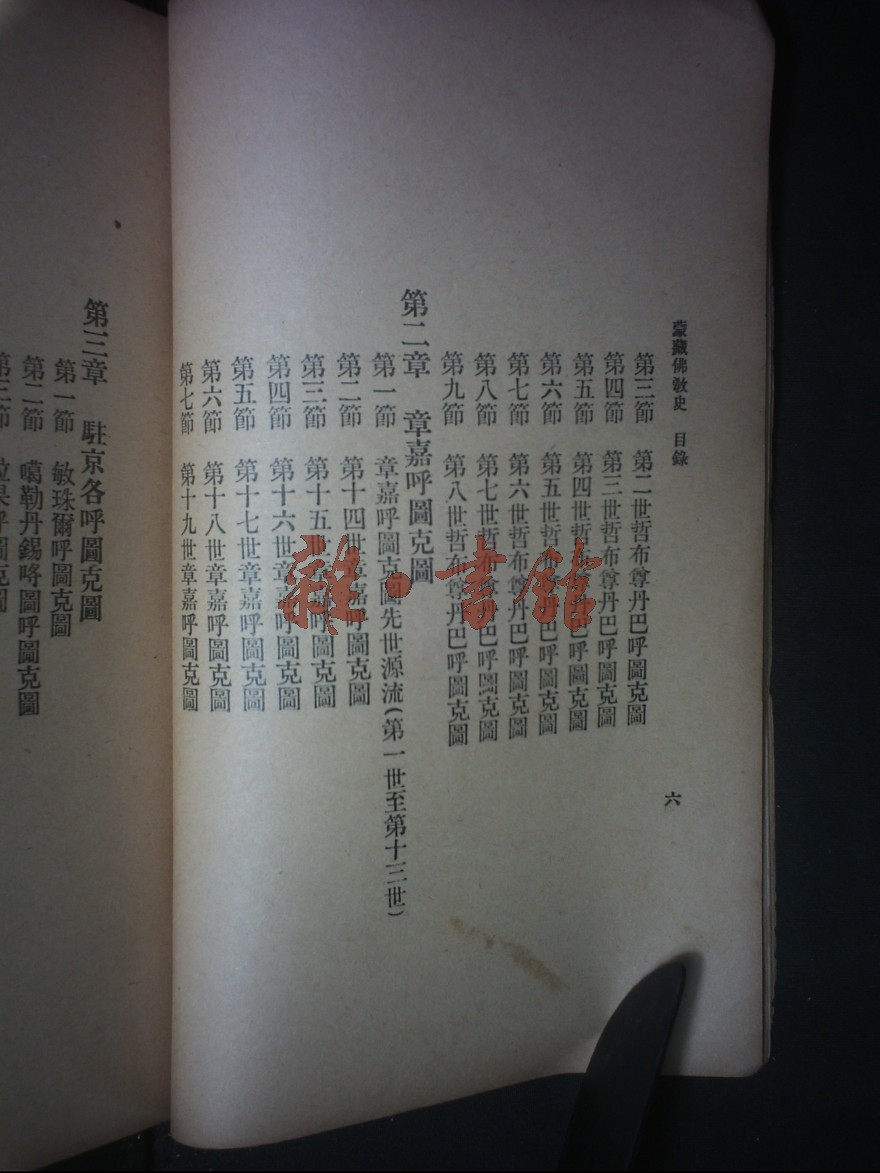 蒙藏佛敎史　目錄
六
第三節　第二世哲布尊丹巴呼圖克圖
第四節　第三世哲布尊丹巴呼圖克圖
第五節　第四世哲布尊丹巴呼圖克圖
第六節　第五世哲布尊丹巴呼圖克圖
第七節　第六世哲布尊丹巴呼圖克圖
第八節　第七世哲布尊丹巴呼圖克圖
第九節　第八世哲布尊丹巴呼圖克圖
第二章　章嘉呼圖克圖
第一節　章嘉呼圖克圖先世源流(第一世至第十三世)
第二節　第十四世章嘉呼圖克圖
第三節　第十五世章嘉呼圖克圖
第四節　第十六世章嘉呼圖克圖
第五節　第十七世章嘉呼圖克圖
第六節　第十八世章嘉呼圖克圖
第七節　第十九世章嘉呼圖克圖
第三章　駐京各呼圖克圖
第一節　敏珠爾呼圖克圖
第二節　噶勒丹錫咚圖呼圖克圖
第三節　呼圖克圖
雜·書館